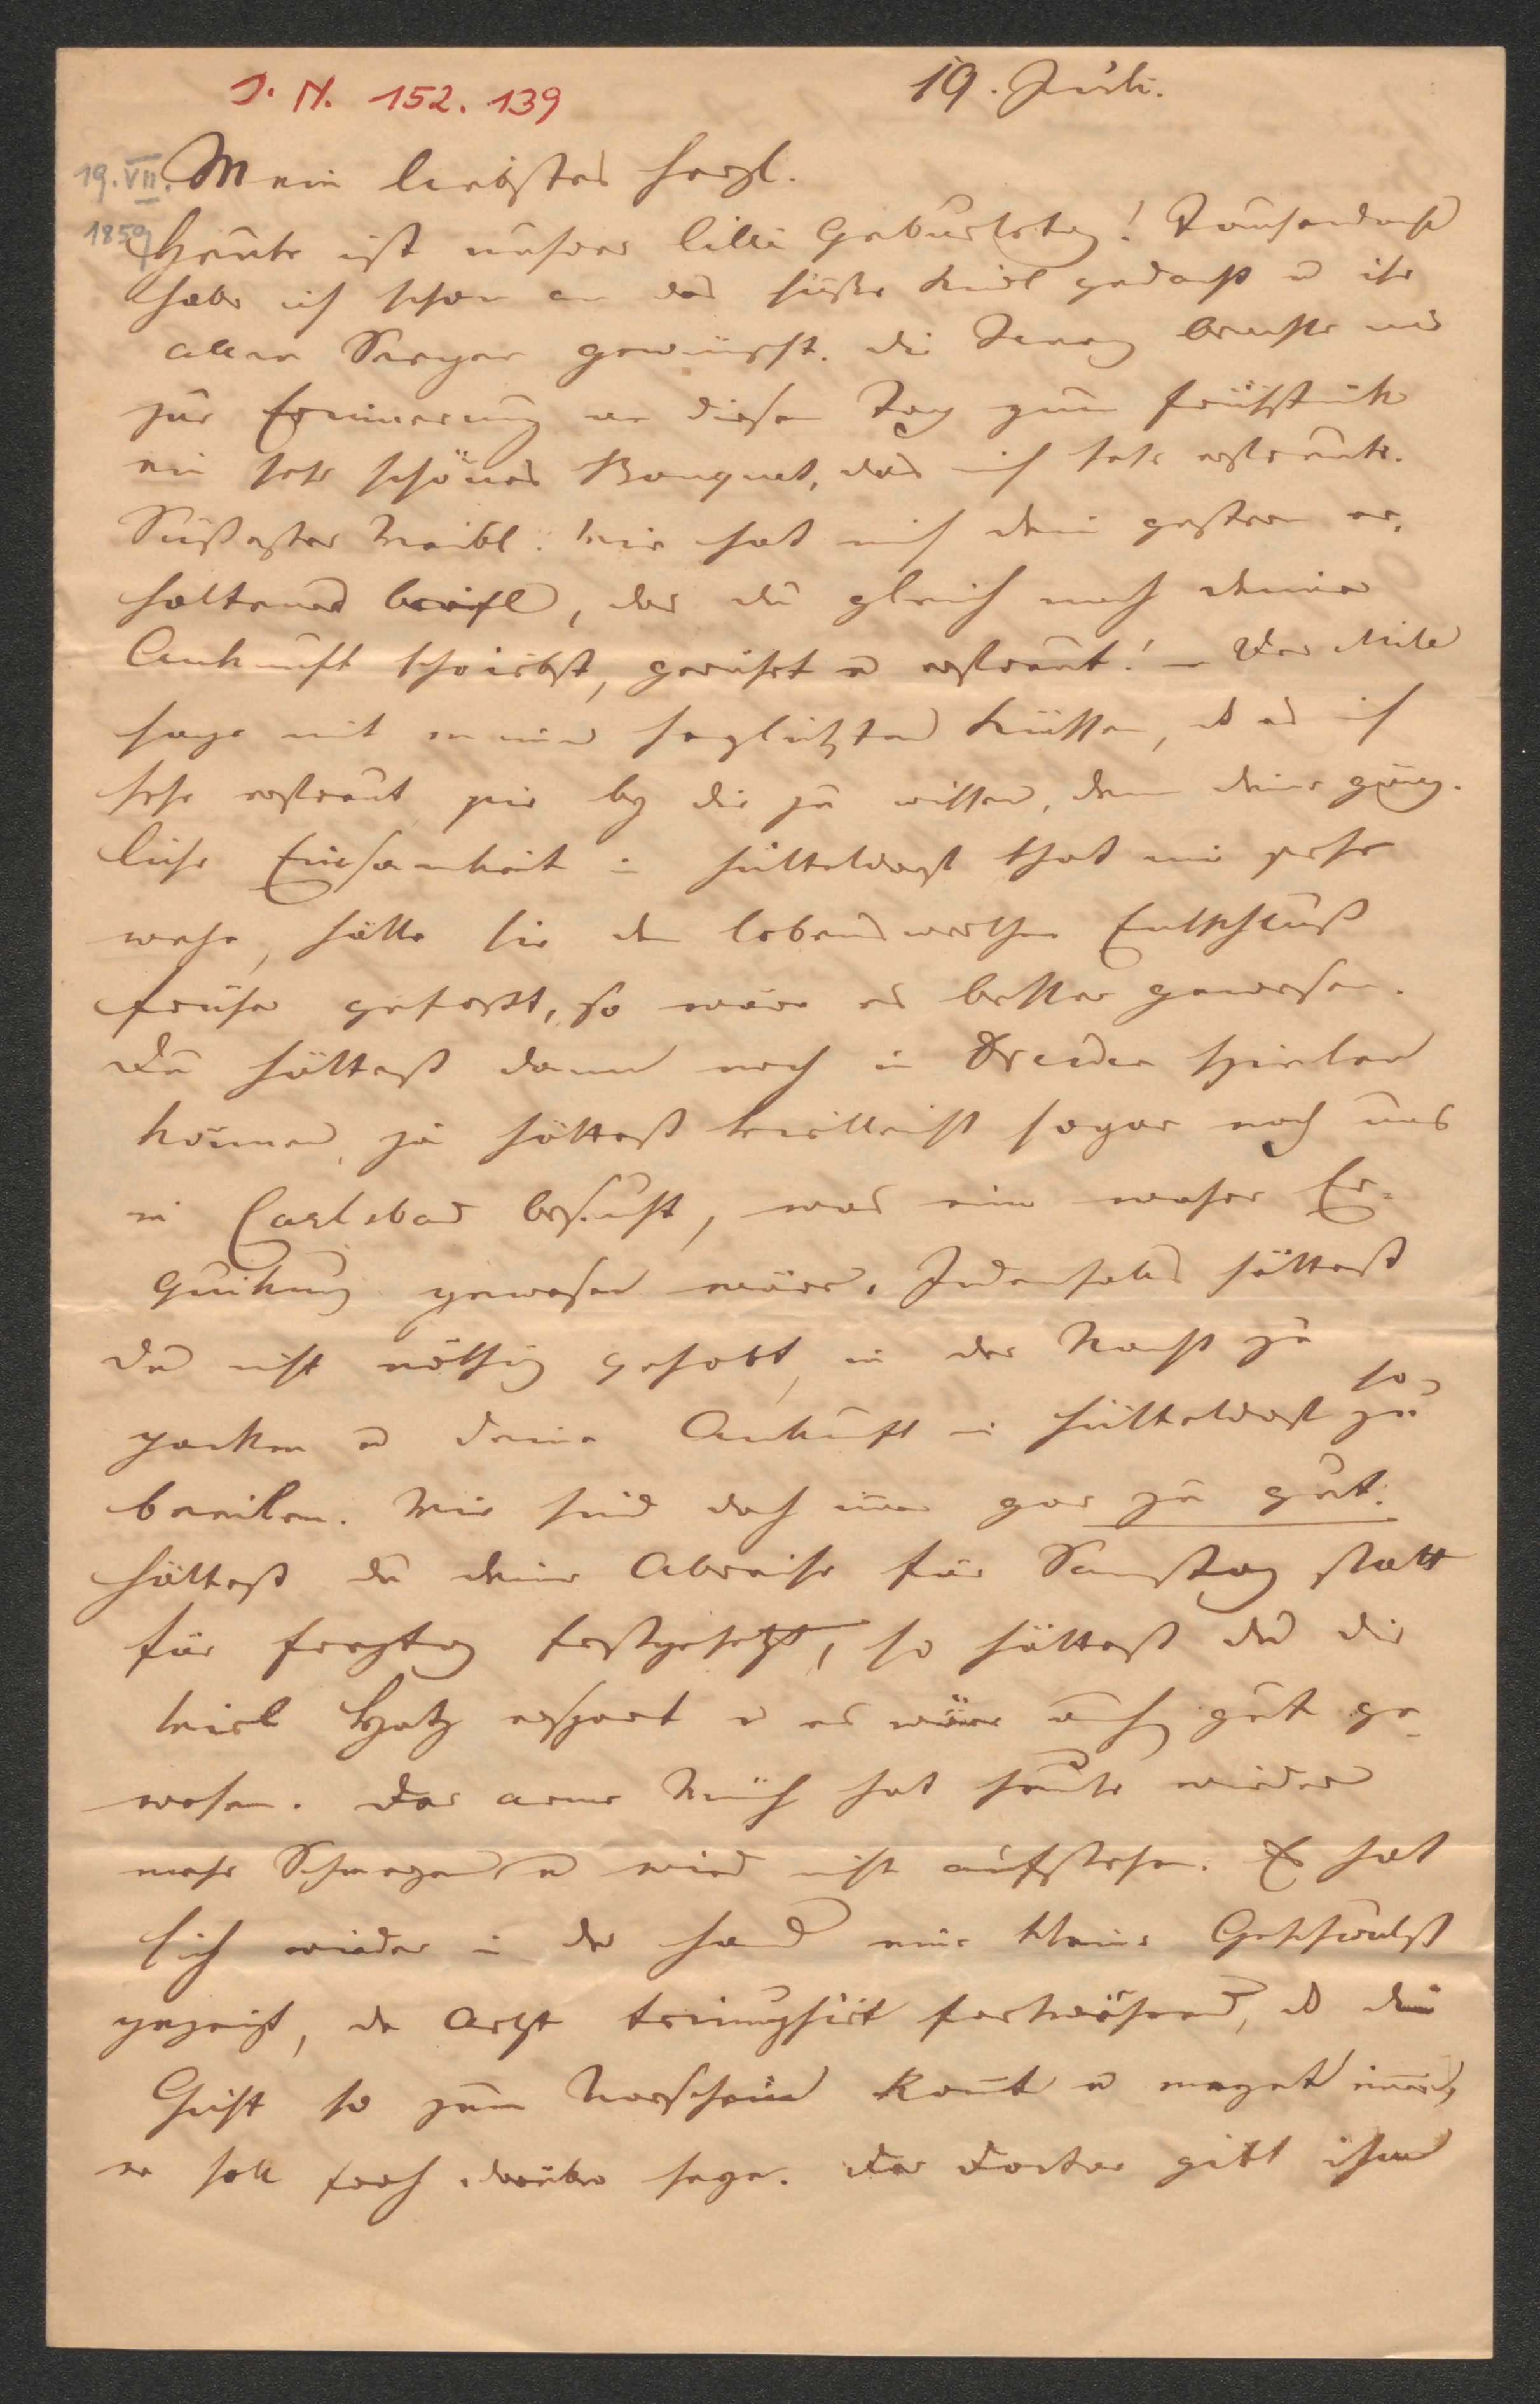 J. N. 152.139
19. Juli.
19. VII.
1859
Mein liebstes Herzl.
Heute ist unsrer Lilli Geburtstag! Tausendmal
habe ich schon an das süße Kindl gedacht u ihr
allen Seegen gewünscht. die Jenny brachte uns
zur Erinnerung an diesen Tag zum Frühstück
ein sehr schönes Bouquet, das mich sehr erfreute.
Süßester Weibl! wie hat mich dein gestern er-
haltenes briefl, das du gleich nach deiner
Ankunft schriebst, gerührt u erfreut! – Der Mila
sage mit meinen herzlichsten Küssen, daß es mich
sehr erfreut sie bey dir zu wissen, denn deine gänz-
liche Einsamkeit in Hütteldorf that mir sehr
wehe, hätte sie den lobenswerthen Entschluß
früher gefaßt, so wäre es besser gewesen.
Du hättest dann noch in Dresden spielen
können, ja hättest vielleicht sogar noch uns
in Carlsbad besucht, was eine wahre Er-
quikung gewesen wäre. Jedenfalls hättest
du nicht nöthig gehabt, in der Nacht zu
packen u deine Ankunft in Hütteldorf so zu
beeilen. Wir sind doch immer gar zu gut.
hättest du deine Abreise für Samstag statt
für Freytag festgesetzt, so hättest du dir
viel Hatz erspart u es wäre auch gut ge-
wesen. Der arme hat heute wieder
mehr Schmerzen u wird nicht aufstehen. Es hat
sich wieder in der Hand eine kleine Geschwulst
gezeigt, der Arzt triumphirt fortwährend, daß die
Gicht so zum Vorschein komt u meynt immer,
er soll froh darüber seyn. Der Doctor gibt ihm